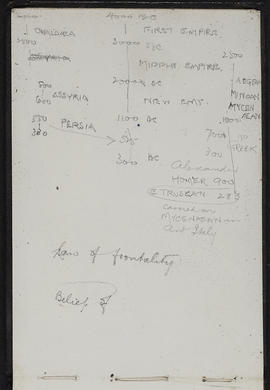 4000 BC
CHALDAEA FIRST EMPIRE
3000 BC 2500
MIDDLE EMPIRE
2000 BC AEGEAN
MINOAN
ASSYRIA NEW EMP. MYCEN
600 AEAN
1100 BC 1000
PERSIA 700 TO
GREEK
300 BC 300
Alexander
HOMER 900
ETRUSCAN 283
carried on
MYCENAEAN in
Ant Italy
Law of frontality
Belief of